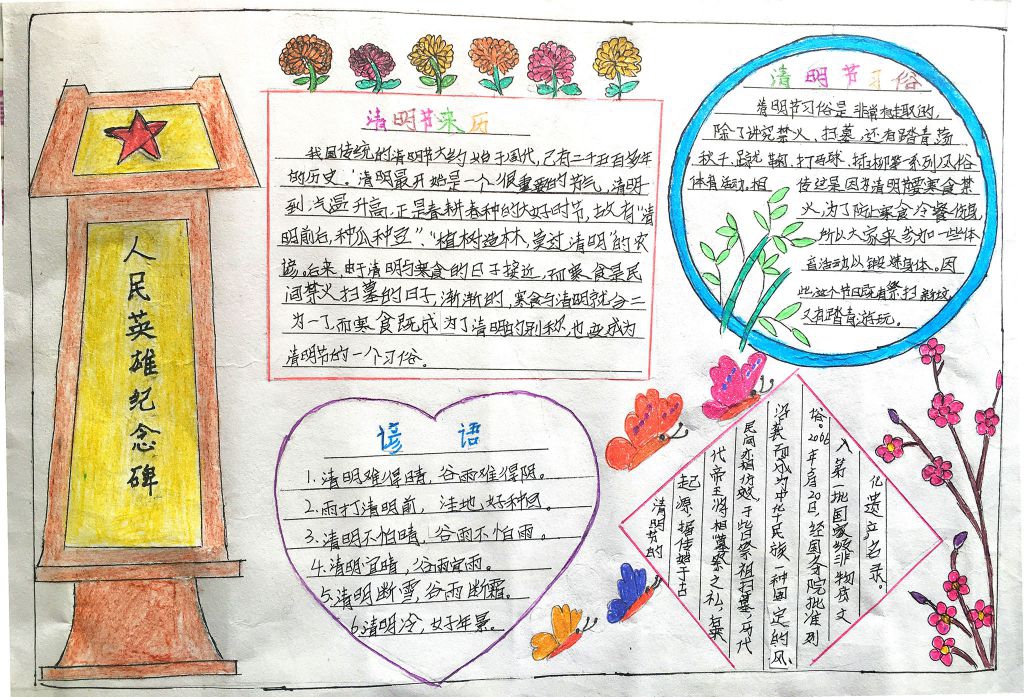 人民英雄纪念碑
清明节来历
我国传统的清明节大约始于周代,已有二十五百多年
的历史。清明最开始是一个很重要的节气,清明
到,气温升高,正是春耕春种的大好时节,故有“清
明前后,种瓜种豆”、“植树造林,莫过清明”的农
谚。后来,由于清明与寒食的日子接近,而寒食是民
间禁火扫墓的日子,渐渐的,寒食与清明就合二
为一了,而寒食既成为了清明的别称,也变成为
清明节的一个习俗。
清明节习俗
清明节习俗是非常有趣的,
除了讲究禁火、扫墓,还有踏青、荡
秋千、蹴鞠、打马球、插柳等一系列风俗
体育活动,相传这是因为清明节要寒食禁
火,为了防止寒食冷餐伤身,
所以大家来参加一些体
育活动,以锻炼身体。因
此,这个节日既有祭扫新坟
又有踏青游玩。
谚语
1.清明难得晴,谷雨难得阴。
2.雨打清明前,洼地好种田。
3.清明不怕晴,谷雨不怕雨。
4.清明宜晴,谷雨宜雨。
5.清明断雪,谷雨断霜。
6.清明冷,好年景。
清明节的
起源,据传始于古
代帝王将相“墓祭”之礼,后来
民间亦相仿效,于此日祭祖扫墓,历代
沿袭而成为中华民族一种固定的风
俗。2006年5月20日,经国务院批准列
入第一批国家级非物质文
化遗产名录。